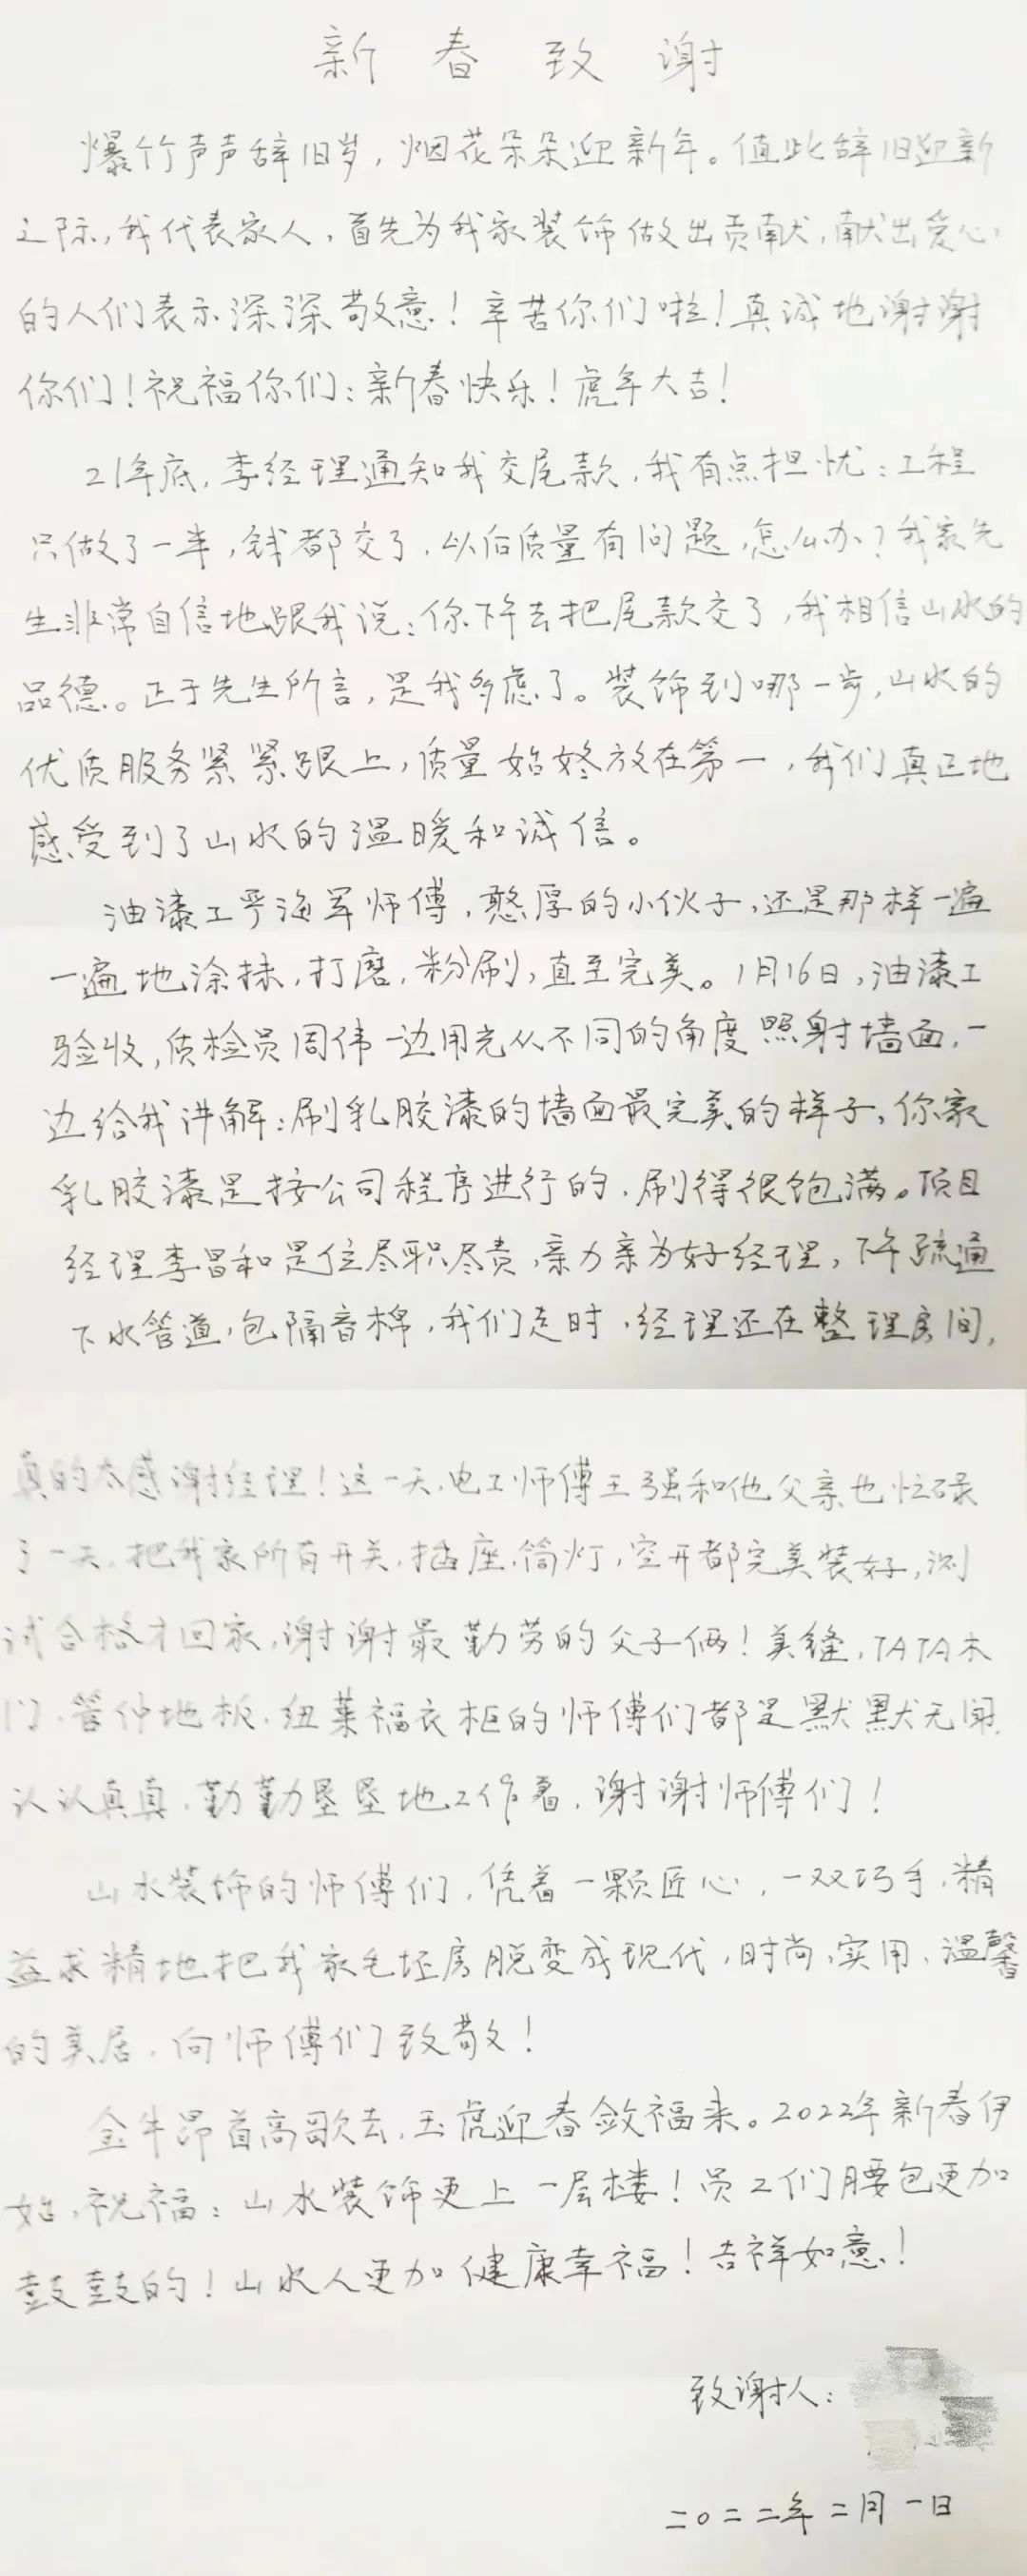 新春致谢
爆竹声声辞旧岁,烟花朵朵迎新年。值此辞旧迎新
之际,我代表家人,首先为我家装饰做出贡献,献出爱心
的人们表示深深敬意!辛苦你们啦!真诚地谢谢
你们!祝福你们:新春快乐!虎年大吉!
21年底,李经理通知我交尾款,我有点担忧:工程
只做了一半,钱都交了,以后质量有问题,怎么办?我家先
生非常自信地跟我说:你下午去把尾款交了,我相信山水的
品德。正于先生所言,是我多虑了。装饰到哪一步,山水的
优质服务紧紧跟上,质量始终放在第一,我们真正地
感受到了山水的温暖和诚信。
油漆工严海军师傅,憨厚的小伙子,还是那样一遍
一遍地涂抹,打磨,粉刷,直至完美。1月16日,油漆工
验收,质检员周伟一边用光从不同的角度照射墙面,一
边给我讲解:刷乳胶漆的墙面最完美的样子,你家
乳胶漆是按公司程序进行的,刷得很饱满。项目
经理李昌和是位尽职尽责,亲力亲为好经理,下午疏通
下水管道,包隔音棉,我们走时,经理还在整理房间,
真的太感谢经理!这一天,电工师傅王强和他父亲也忙碌
了一天,把我家所有开关,插座,筒灯,空开都完美装好,测
试合格才回家,谢谢最勤劳的父子俩!美缝,TATA木
门,管仲地板,纽莱福衣柜的师傅们都是默默无闻,
认认真真,勤勤垦垦地工作着,谢谢师傅们!
山水装饰的师傅们,凭着一颗匠心,一双巧手,精
益求精地把我家毛坯房脱变成现代,时尚,实用,温馨
的美居,向师傅们致敬!
金牛昂首高歌去,玉虎迎春敛福来。2022年新春伊
始,祝福:山水装饰更上一层楼!员工们腰包更加
鼓鼓的!山水人更加健康幸福!吉祥如意!
致谢人:
二〇二二年二月一日